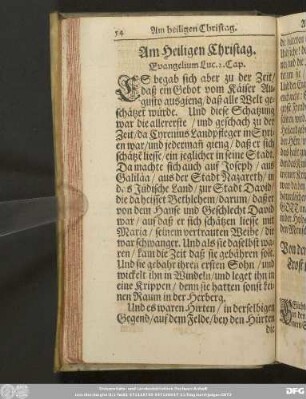 54 Am heiligen Christag.
Am Heiligen Christag.
Evangelium Luc. 2. Cap.
ES begab sich aber zu der Zeit/
daß ein Gebot vom Käiser Au-
gusto ausgieng/ daß alle Welt ge-
schätzet würde. Und diese Schatzung
war die allererste / und geschach zu der
Zeit/ da Cyrenius Landpfleger in Syri-
en war/ und jederman gieng/ daß er sich
schätzē liesse/ ein jeglicher in seine Stadt.
Da machte sich auch auf Joseph / aus
Galiläa / aus der Stadt Nazareth / in
das Jüdische Land / zur Stadt David/
die da heisset Bethlehem/ darum/ daß er
von dem Hause und Geschlecht David
war / auf daß er sich schätzen liesse mit
Maria / seinem vertrauten Weibe / die
war schwanger. Und als sie daselbst wa-
ren / kam die Zeit daß sie gebähren solt.
Und sie gebahr ihren ersten Sohn / und
wickelt ihn in Windeln/ und leget ihn in
eine Krippen / denn sie hatten sonst kei-
nen Raum in der Herberg.
Und es waren Hirten / in derselbigen
Gegend/ auf dem Felde/ bey den Hürten
die